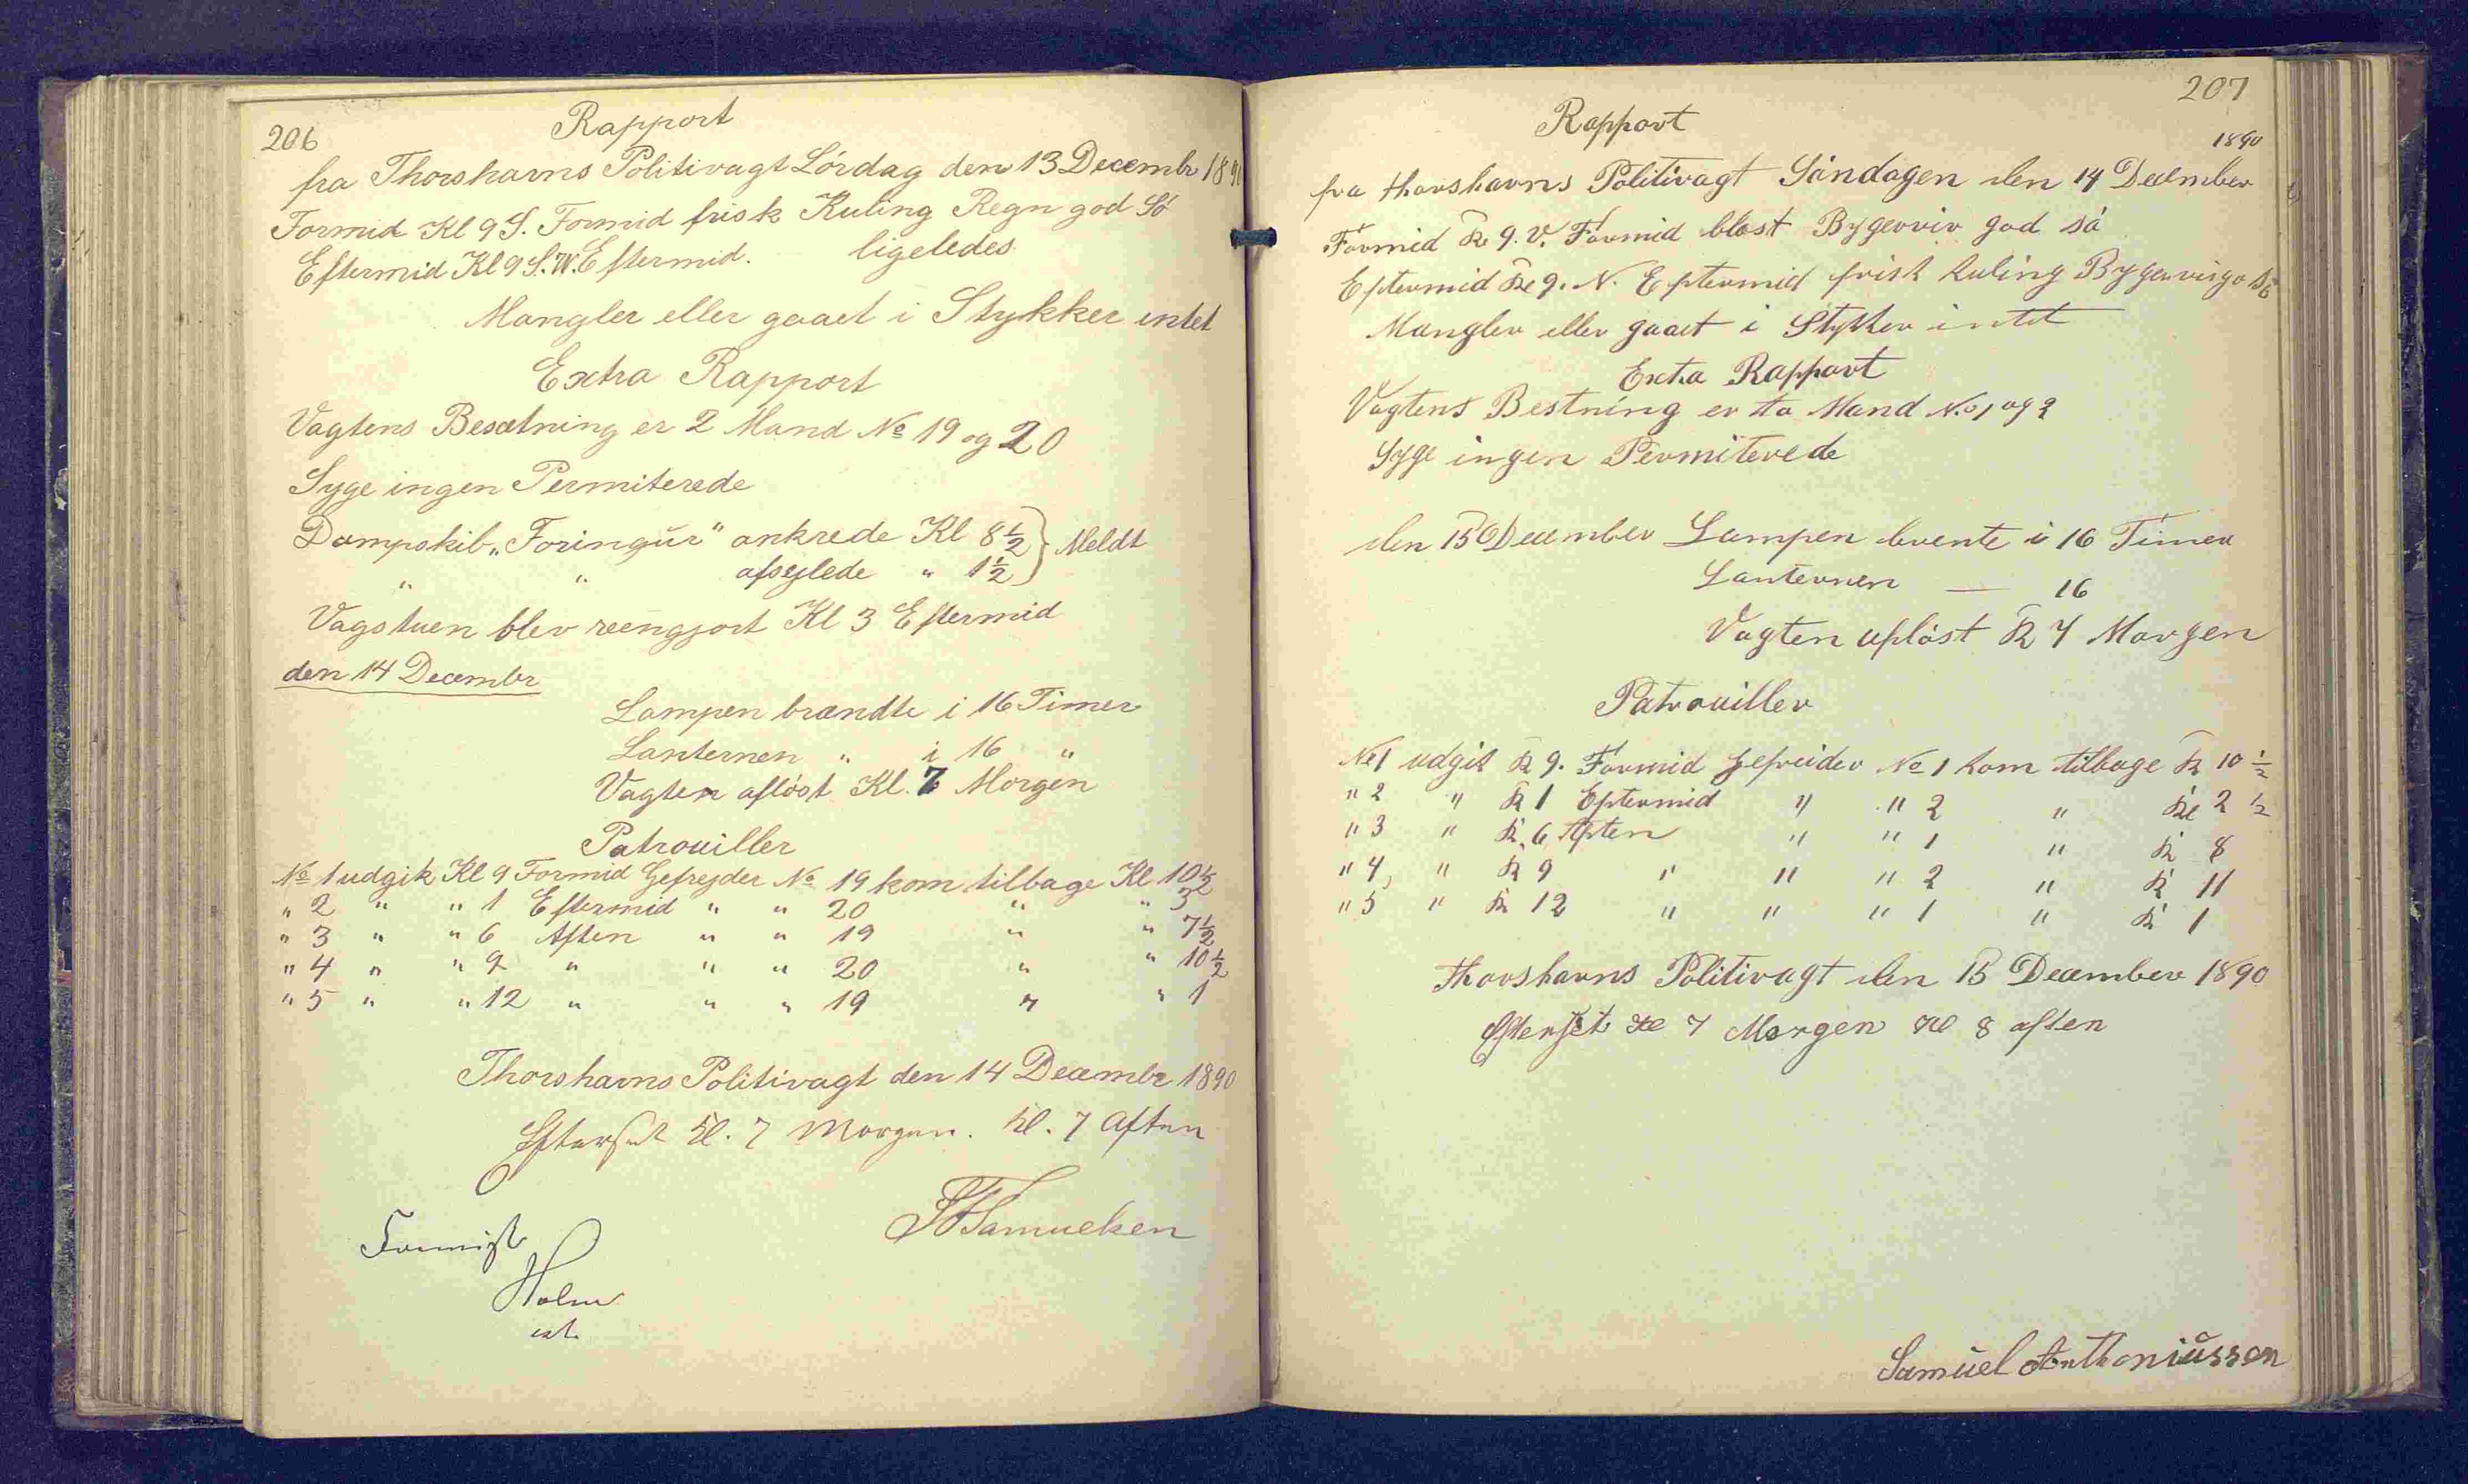 206
Rapport
fra Thorshavns Politivagt Lördag den 13 Decembr 1890
Formid Kl 9 S. Formid frisk Kuling Regn god Sö
Eftermid Kl 9 S.W. Eftermid. — ligeledes
Mangler eller gaaet i Stykker intet
Extra Rapport
Vagtens Besætning er 2 Mand No 19 og 20
Syge ingen Permiterede
Dampskib „Foringur" ankrede Kl 8½ } Meldt
" " afsejlede " 1½
Vagstuen blev reengjort Kl 3 Eftermid
den 14 Decembr
Lampen brændte i 16 Timer
Lanternen " i 16 "
Vagten aflöst Kl. 7 Morgen
Patrouiller
No 1 udgik Kl 9 Formid Gefrejder No 19 kom tilbage Kl 10½
" 2 " " 1 Eftermid " " 20 " " 3
" 3 " " 6 Aften " " 19 " " 7½
" 4 " " 9 " " " 20 " " 10½
" 5 " " 12 " " " 19 " " 1
Thorshavns Politivagt den 14 Decembr 1890
Efterset Kl. 7 Morgen. Kl. 7 Aften
Samuelsen
Holm
207
Rapport
1890
fra thorshavns Politivagt Söndagen den 14 December
Formid Kl 9. V. Formid blæst Bygervir god sö
Eptermid Kl 9. N. Eptermid frisk kuling
Mangler eller gaaet i Stykker intet
Exta Rapport
Vagtens Bestning er to Mand No 1 og 2
Syge ingen Permiterede
den 15 December Lampen brente i 16 Timer
Lanternen — 16
Vagten uplöst Kl 7 Morgen
Patrouiller
No 1 udgik Kl 9. Formid Gefreider No 1 kom tilbage Kl 10½
" 2 " Kl 1 Eptermid " " 2 " Kl 2½
" 3 " Kl 6 Apten " " 1 " Kl 8
" 4 " Kl 9 " " " 2 " Kl 11
" 5 " Kl 12 " " " 1 " Kl 1
thorshavns Politivagt den 15 December 1890
Efterset Kl 7 Morgen Kl 8 aften
Samuel Anthoniussen